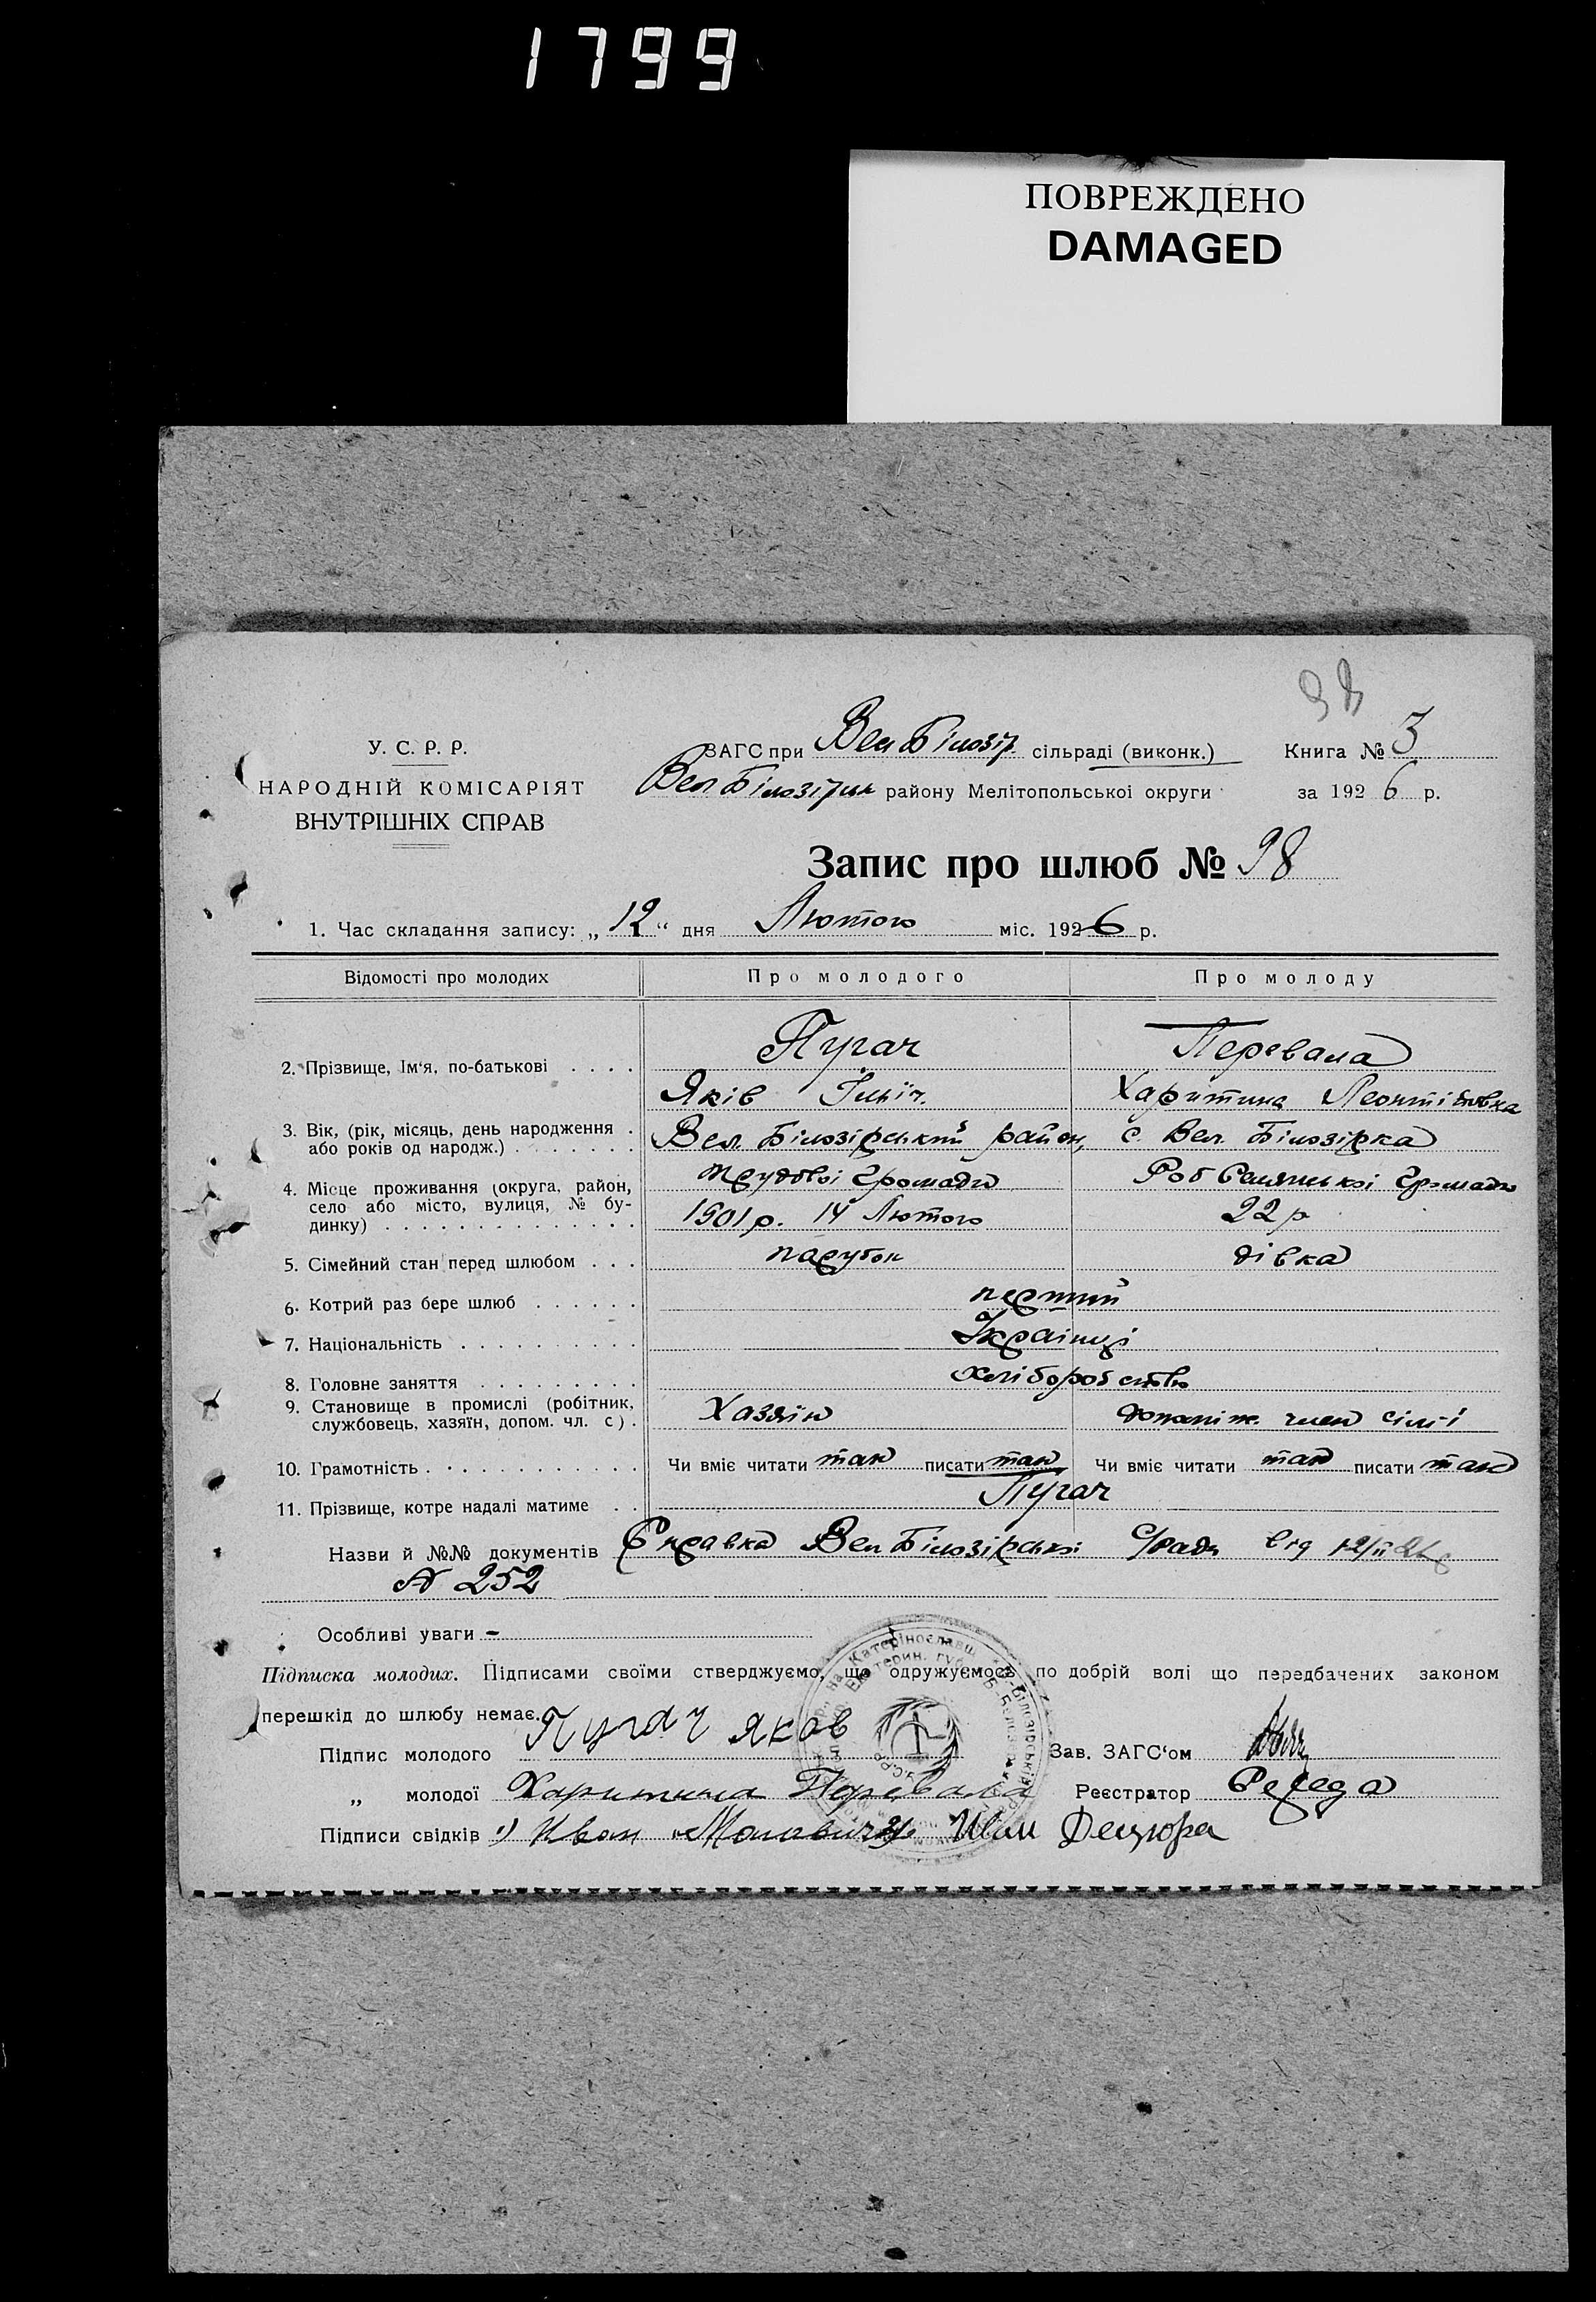 1799
ПОВРЕЖДЕНО
DAMAGED
98
У. С. Р. Р.
НАРОДНІЙ КОМІСАРІЯТ
ВНУТРІШНІХ СПРАВ
ЗАГС при Вел Білозір сільраді (виконк.) Книга № 3
Вел Білозірськ району Мелітопольської округи за 1926 р.
Запис про шлюб № 98
1. Час складання запису: „12“ дня Лютого міс. 1926 р.
Відомості про молодих Про молодого Про молоду
2. Прізвище, Ім‘я, по-батькові . . . . Пугач Перевала
Яків Ількіч. Харитина Леонтіївна
3. Вік, (рік, місяць, день народження . Вел. Білозірський район, с. Вел. Білозірка
або років од народж.) . . . . . . .
4. Місце проживання (округа, район, трудової громади Роб Селянської громади
село або місто, вулиця, № бу-
динку) . . . . . . . . . . . . . 1901 р. 14 Лютого 22 р
5. Сімейний стан перед шлюбом . . . парубок дівка
6. Котрий раз бере шлюб . . . . . . перший
7. Національність . . . . . . . . . . Українці
8. Головне заняття . . . . . . . . . хліборобство
9. Становище в промислі (робітник, Хазяїн допоміж. член сім'ї
службовець, хазяїн, допом. чл. с) .
10. Грамотність . . . . . . . . . . . . Чи вміє читати так писати так Чи вміє читати так писати так
11. Прізвище, котре надалі матиме . . Пугач
Назви й №№ документів Справка Вел Білозірської С/ради від 12/II 26
№ 252
Особливі уваги –
Підписка молодих. Підписами своїми стверджуємо, що одружуємося по добрій волі що передбачених законом
перешкід до шлюбу немає.
Підпис молодого Пугач Яков Зав. ЗАГС‘ом
„ молодої Харитина Перевала Реєстратор
Підписи свідків 1) Иван 2) Иван Децюра